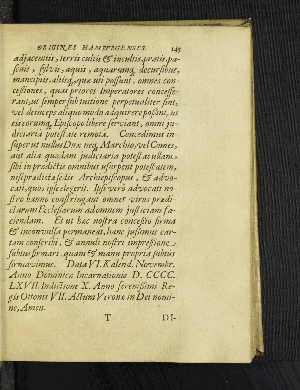 ORIGINES HAMBURGENSES. 145
adjacentiis, terris cultis & incultis, pratis, pascuis,
sylvis, aquis, aquarumq; decursibus,
mancipiis, aliisq; quæ uti possunt, omnes concessiones,
quas priores Imperatores concesserant,
ut semper sub tuitione perpetualiter sint,
vel deinceps aliquo modo adquirere possint, ut
eis eorumq; Episcopo libere serviant, omni judiciaria
potestate remota. Concedimus insuper
ut nullus Dux neq; Marchio, vel Comes,
aut alia quædam judiciaria potestas ullam
sibi in prædictis omnibus usurpent potestatem,
nisi prædictæ sedis Archiepiscopus, & advocati,
quos ipse elegerit. Ipsi verò advocati nostro
banno constringant omnes viros prædictarum
Ecclesiarum ad omnem justitiam faciendam.
Et ut hæc nostra concessio firma
& inconvulsa permaneat, hanc jussimus cartam
conscribi, & annuli nostri impressione
subtus firmari, quam & manu propria subtus
firmavimus. Data VI. Kalend. Novembr.
Anno Dominicæ Incarnationis D. CCCC.
LXVII. Indictione X. Anno serenissimi Regis
Ottonis VII. Actum Veronæ in Dei nomine,
Amen.
T DI-